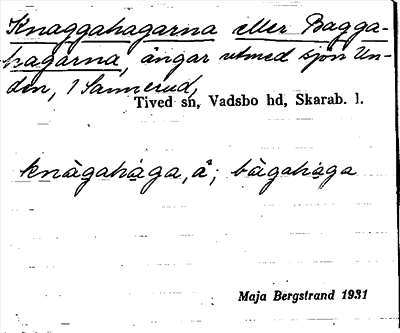 Knaggahagarna eller Bagga-
hagarna, ängar utmed sjön Un-
den, 1 Sannerud,
Tived sn, Vadsbo hd, Skarab. l.
knàgahága, å; bàgahága
Maja Bergstrand 1931